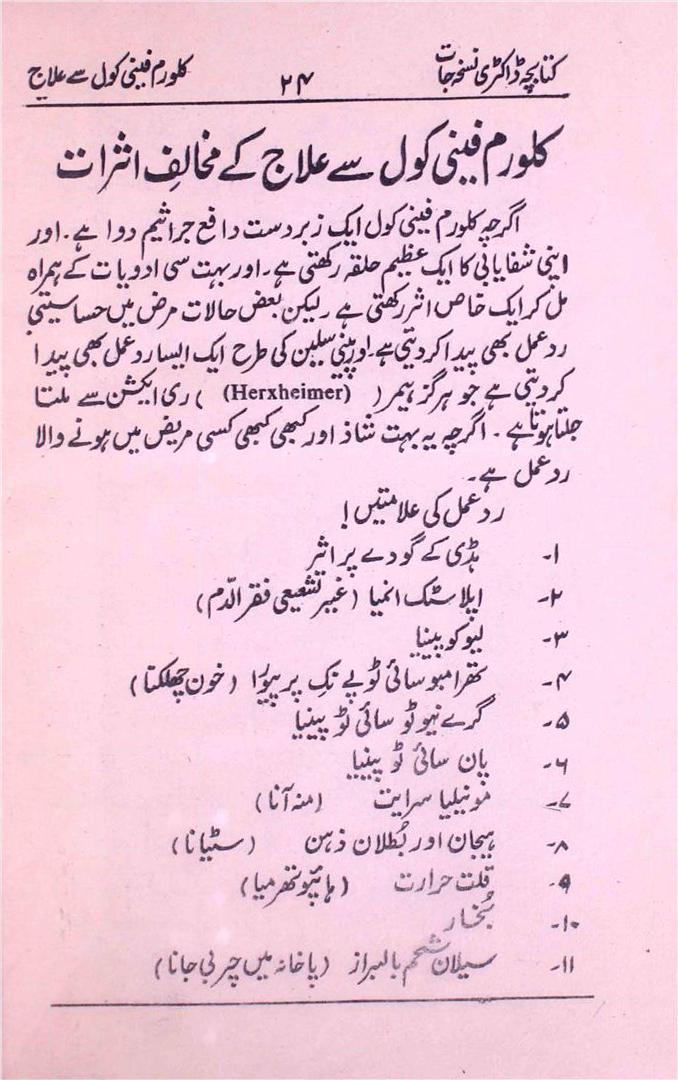 کتابچہ ڈاکٹری نسخہ جات ۲۴ کلورم فینی کول سے علاج
کلورم فینی کول سے علاج کے مخالفِ اثرات
اگرچہ کلورم فینی کول ایک زبردست دافع جراثیم دوا ہے۔ اور
اپنی شفایابی کا ایک عظیم حلقہ رکھتی ہے۔ اور بہت سی ادویات کے ہمراہ
مل کر ایک خاص اثر رکھتی ہے۔ لیکن بعض حالات مرض میں حساسیتی
ردعمل بھی پیدا کردیتی ہے۔ اور پینی سلین کی طرح ایک ایسا ردعمل بھی پیدا
کردیتی ہے جو ہرگز ہیمر ( (Herxheimer) ) ری ایکشن سے ملتا
جلتا ہوتا ہے۔ اگرچہ یہ بہت شاذ اور کبھی کبھی کسی مریض میں ہونے والا
ردعمل ہے۔
ردعمل کی علامتیں!
۱۔ ہڈی کے گودے پر اثر
۲۔ اپلاسٹک انمیا (غیر تشعیعی فقر الدّم)
۳۔ لیوکوپینیا
۴۔ تھرامبوسائی ٹوپے نک پرپیورا (خون چھلکتا)
۵۔ گرے نیوٹو سائی ٹو پینیا
۶۔ پان سائی ٹو پینیا
۷۔ مونیلیا سرایت (منہ آنا)
۸۔ ہیجان اور بُطلان ذہن (سٹیانا)
۹۔ قلت حرارت (ہائپوتھرمیا)
۱۰۔ بُخار
۱۱۔ سیلان شحم بالبراز (پاخانہ میں چربی جانا)